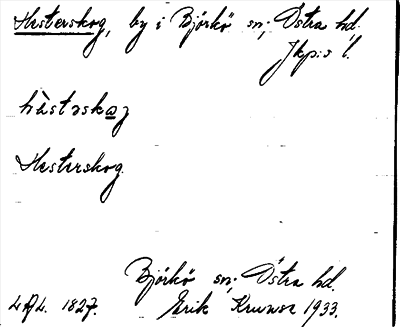 Hesterskog, by i Björkö sn; Östra hd.
Jkp:s l.
hàstərskaz
Hesterskog.
Björkö sn; Östra hd.
LAL. 1827. Erik 1933.